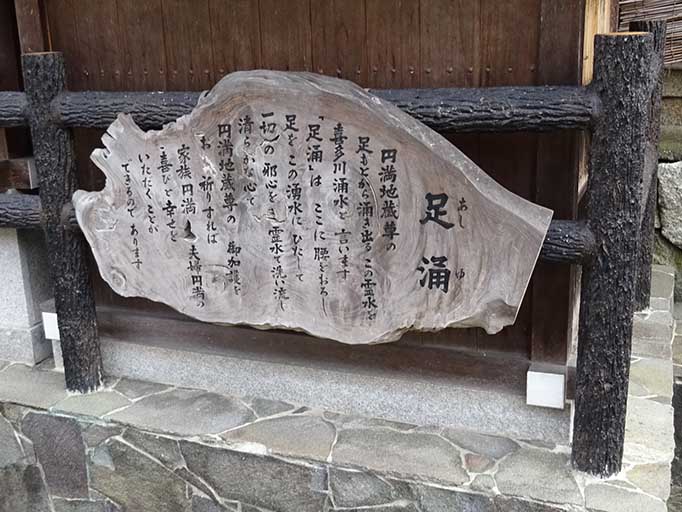 足涌
あし
ゆ
円満地蔵尊の
足もとから涌き出るこの霊水を
喜多川涌水と言います
「足涌」は ここに腰をおろし
足をこの湧水にひたして
一切の邪心を 霊水で洗い流し
清らかな心で
円満地蔵尊の 御加護を
お祈りすれば
家族円満 夫婦円満の
喜びと幸せを
いただくことが
できるのであります